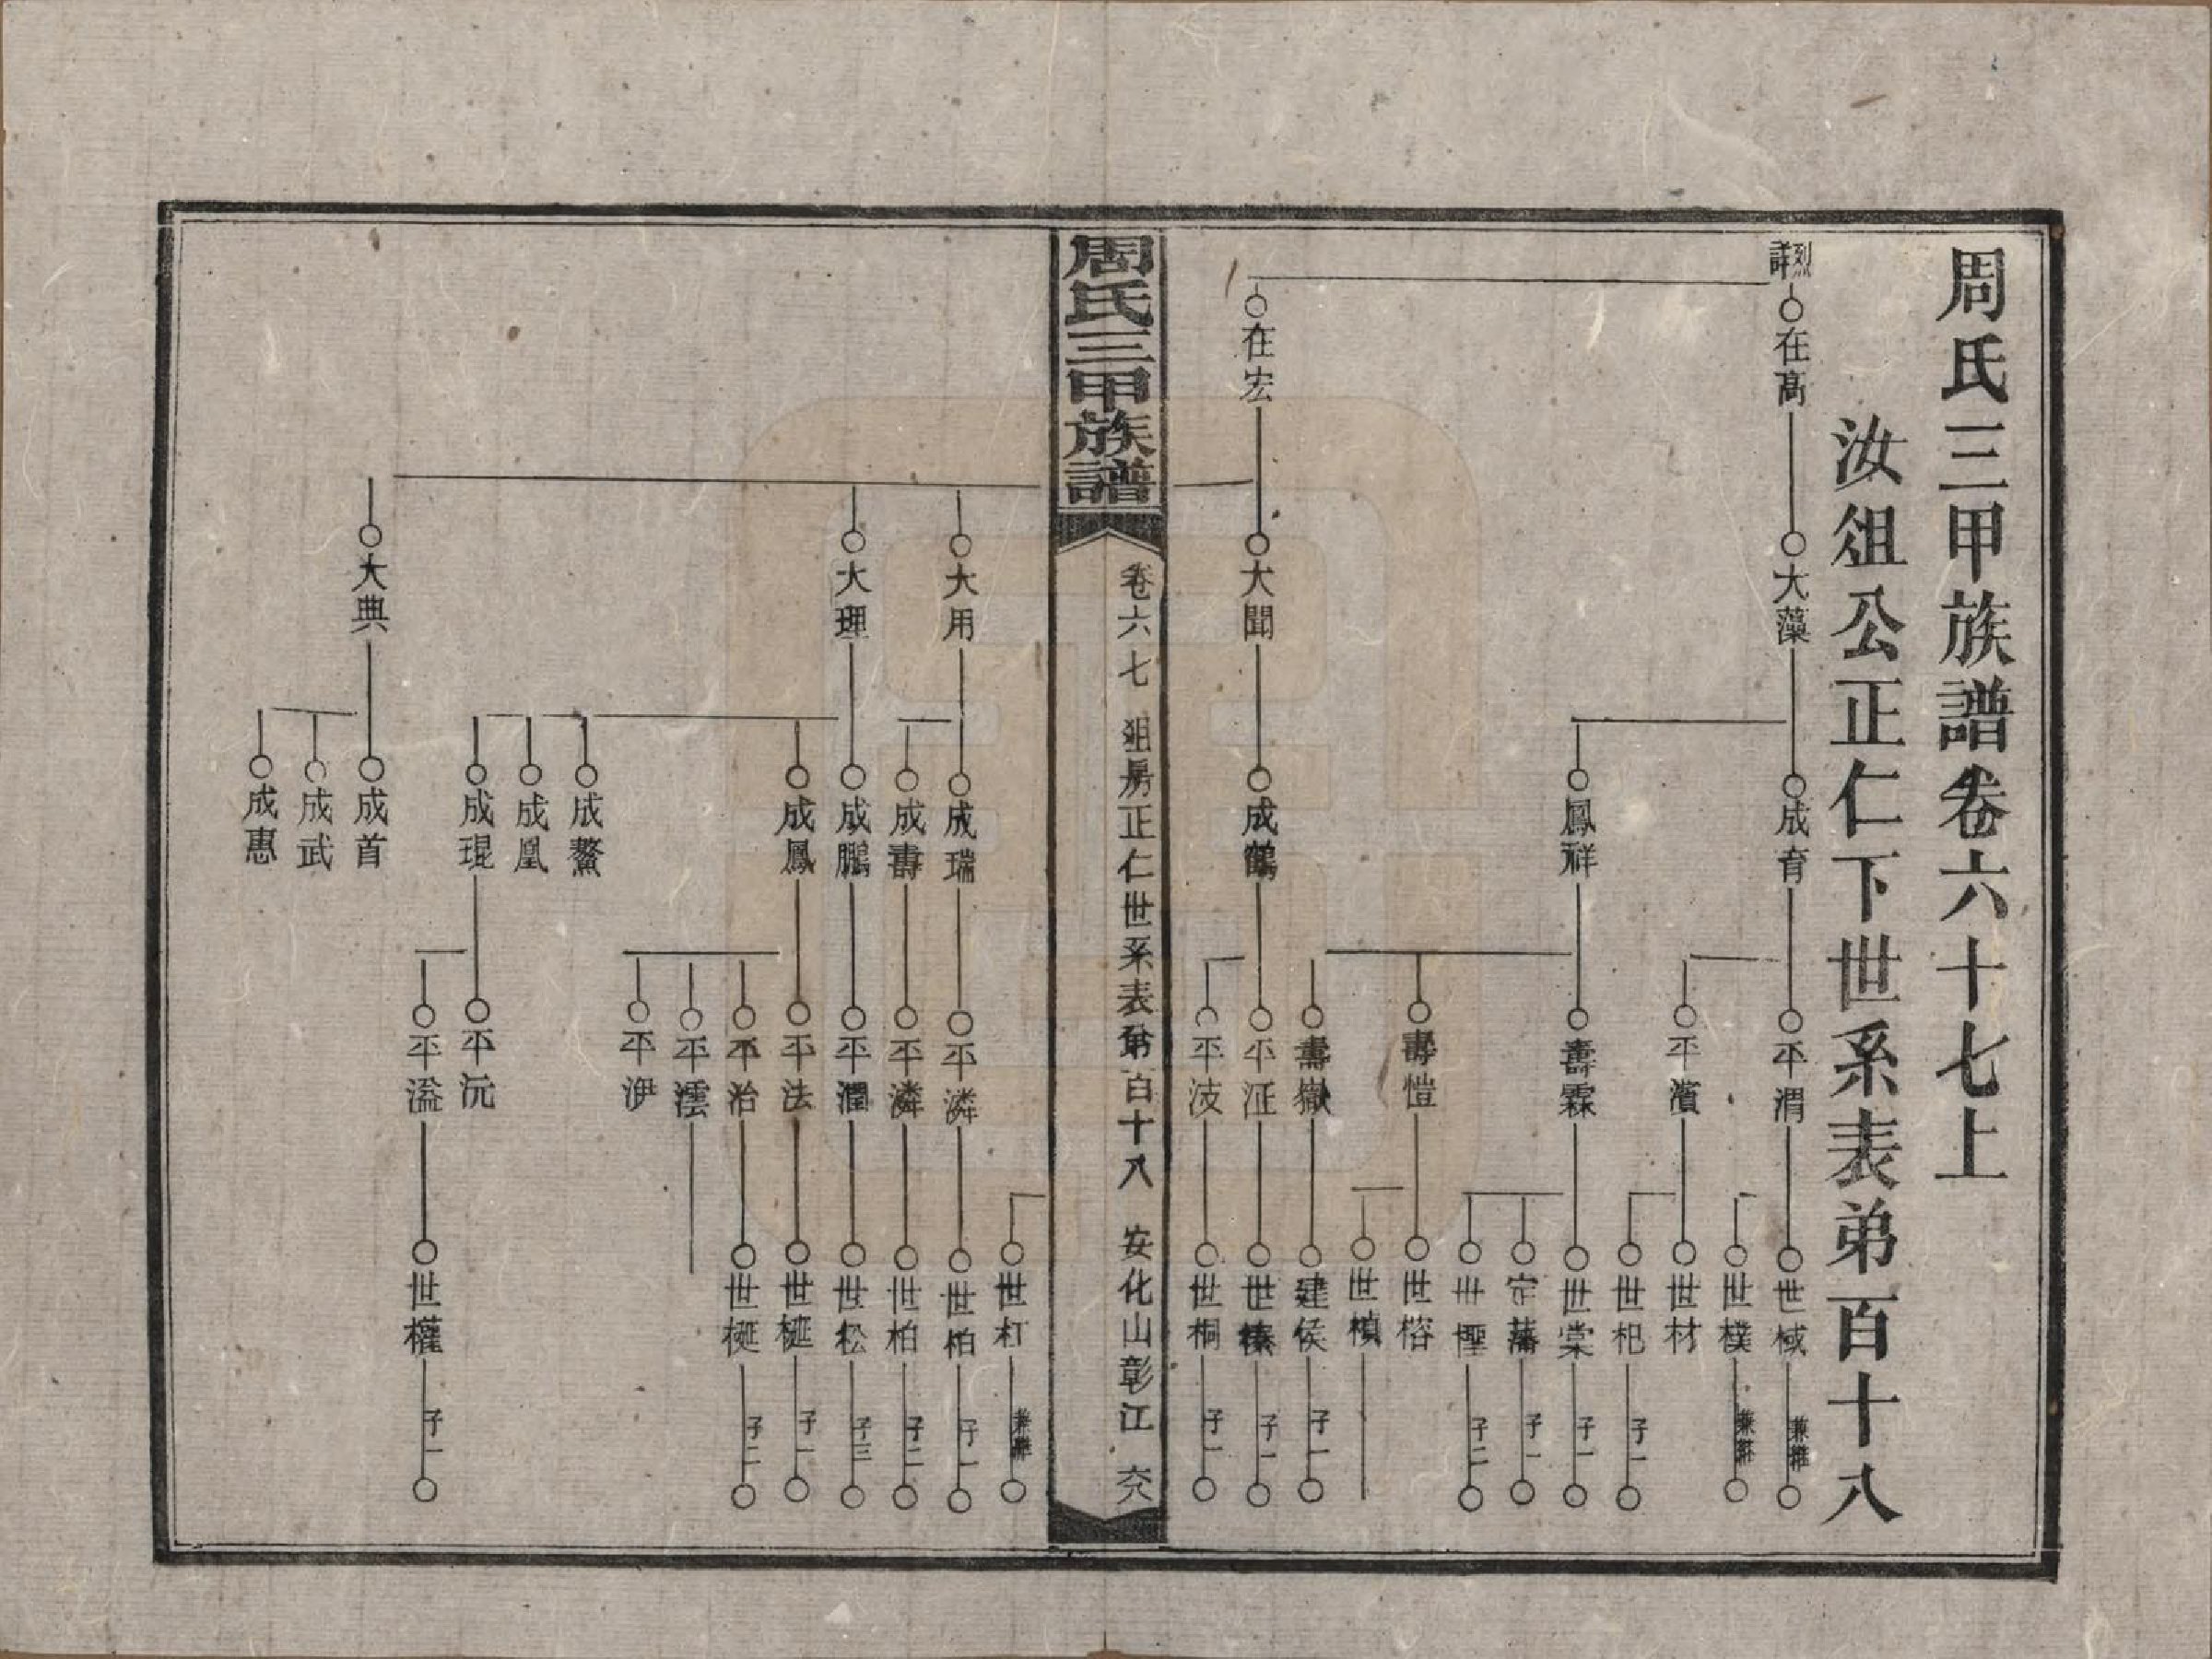 周氏三甲族譜卷六十七上
汝俎公正仁下世系表弟百十八
詳烈
在高
大藻
成育
平渭
世棫
兼祧
世樸
兼祧
平濱
世材
世杞
子一
鳳祥
壽霖
世棠
子一
定藩
子一
世㮚
子二
壽愷
世榕
世楨
壽嶽
建侯
子一
在宏
大聞
成鶴
平洰
世榛
子一
平汥
世桐
子一
周氏三甲族譜
卷六七 俎房正仁世系表弟百十八 安化山彰江
世杠
兼祧
大用
成瑞
平潾
世柏
子一
成壽
平潾
世柏
子二
大理
成鵬
平潤
世松
子三
成鳳
平法
世梴
子一
平治
世梴
子二
平澐
平洢
成鰲
成凰
成琨
平沅
平溢
世權
子一
大典
成首
成武
成惠